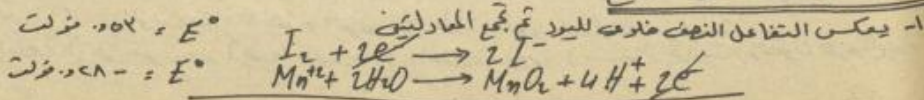 ١- يعكس التفاعل النصف خلوى لليود ثم تجمع المعادلتين
I₂ + 2e⁻ → 2I⁻ E° = ٠,٥٣ فولت
Mn⁺² + 2H₂O → MnO₂ + 4H⁺ + 2e⁻ E° = -٠,٢٨ فولت